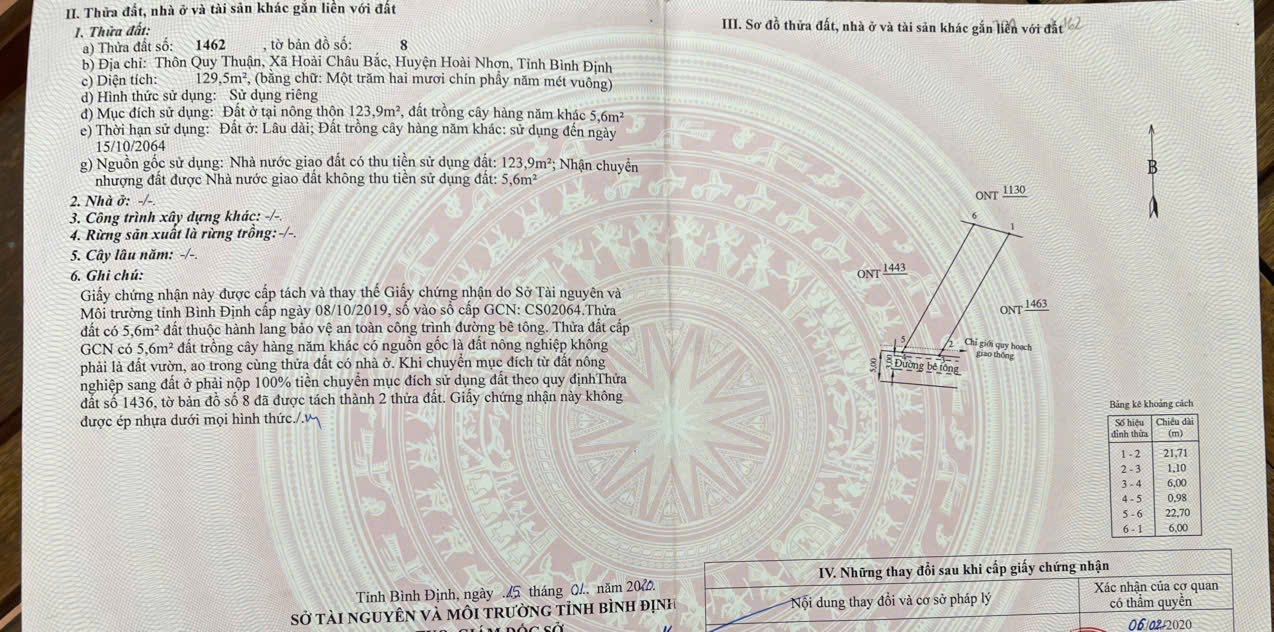 II. Thửa đất, nhà ở và tài sản khác gắn liền với đất
1. Thửa đất:
a) Thửa đất số: 1462 , tờ bản đồ số: 8
b) Địa chỉ: Thôn Quy Thuận, Xã Hoài Châu Bắc, Huyện Hoài Nhơn, Tỉnh Bình Định
c) Diện tích: 129,5m², (bằng chữ: Một trăm hai mươi chín phẩy năm mét vuông)
d) Hình thức sử dụng: Sử dụng riêng
đ) Mục đích sử dụng: Đất ở tại nông thôn 123,9m², đất trồng cây hàng năm khác 5,6m²
e) Thời hạn sử dụng: Đất ở: Lâu dài; Đất trồng cây hàng năm khác: sử dụng đến ngày
15/10/2064
g) Nguồn gốc sử dụng: Nhà nước giao đất có thu tiền sử dụng đất: 123,9m²; Nhận chuyển
nhượng đất được Nhà nước giao đất không thu tiền sử dụng đất: 5,6m²
2. Nhà ở: -/-.
3. Công trình xây dựng khác: -/-.
4. Rừng sản xuất là rừng trồng: -/-.
5. Cây lâu năm: -/-.
6. Ghi chú:
Giấy chứng nhận này được cấp tách và thay thế Giấy chứng nhận do Sở Tài nguyên và
Môi trường tỉnh Bình Định cấp ngày 08/10/2019, số vào sổ cấp GCN: CS02064.Thửa
đất có 5,6m² đất thuộc hành lang bảo vệ an toàn công trình đường bê tông. Thửa đất cấp
GCN có 5,6m² đất trồng cây hàng năm khác có nguồn gốc là đất nông nghiệp không
phải là đất vườn, ao trong cùng thửa đất có nhà ở. Khi chuyển mục đích từ đất nông
nghiệp sang đất ở phải nộp 100% tiền chuyển mục đích sử dụng đất theo quy địnhThửa
đất số 1436, tờ bản đồ số 8 đã được tách thành 2 thửa đất. Giấy chứng nhận này không
được ép nhựa dưới mọi hình thức./.
Tỉnh Bình Định, ngày 15 tháng 01 năm 2020.
SỞ TÀI NGUYÊN VÀ MÔI TRƯỜNG TỈNH BÌNH ĐỊNH
GIÁM ĐỐC SỞ
III. Sơ đồ thửa đất, nhà ở và tài sản khác gắn liền với đất
B
ONT 1130
6
1
ONT 1443
ONT 1463
5
2
Chỉ giới quy hoạch
giao thông
4
3
5,00
Đường bê tông
Bảng kê khoảng cách
Số hiệu đỉnh thửa Chiều dài (m)
1 - 2 21,71
2 - 3 1,10
3 - 4 6,00
4 - 5 0,98
5 - 6 22,70
6 - 1 6,00
IV. Những thay đổi sau khi cấp giấy chứng nhận
Nội dung thay đổi và cơ sở pháp lý
Xác nhận của cơ quan
có thẩm quyền
06/02/2020